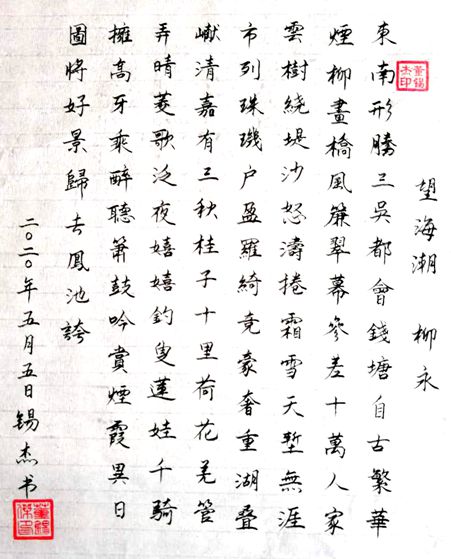 望海潮 柳永
東南形勝三吳都會錢塘自古繁華
煙柳畫橋風簾翠幕參差十萬人家
雲樹繞堤沙怒濤捲霜雪天塹無涯
市列珠璣户盈羅綺竟豪奢重湖叠
巘清嘉有三秋桂子十里荷花羌管
弄晴菱歌泛夜嬉嬉釣叟蓮娃千騎
擁高牙乘醉聽簫鼓吟賞煙霞異日
圖將好景歸去鳳池誇
二〇二〇年五月五日錫杰书
董錫杰印